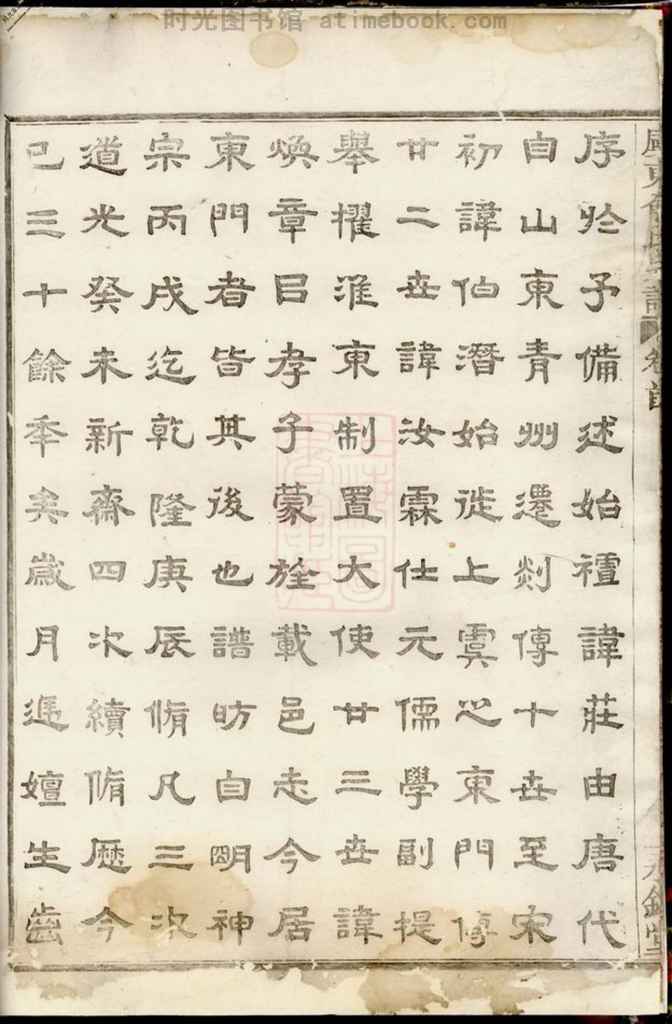 时光图书馆 atimebook.com
序於予備述始諱莊由唐代
自山東青州遷剡傳十世至宋
初諱伯潛始徙上虞之東門傳
廿二世諱汝霖仕元儒學副提
舉擢淮東制置大使廿三世諱
煥章㠯孝子蒙旌載邑志今居
東門者皆其後也譜昉自明神
宗丙戌迄乾隆庚辰脩凡三次
道光癸未新齋四次續脩歷今
已三十餘年矣歲月遞嬗生齒
卷首